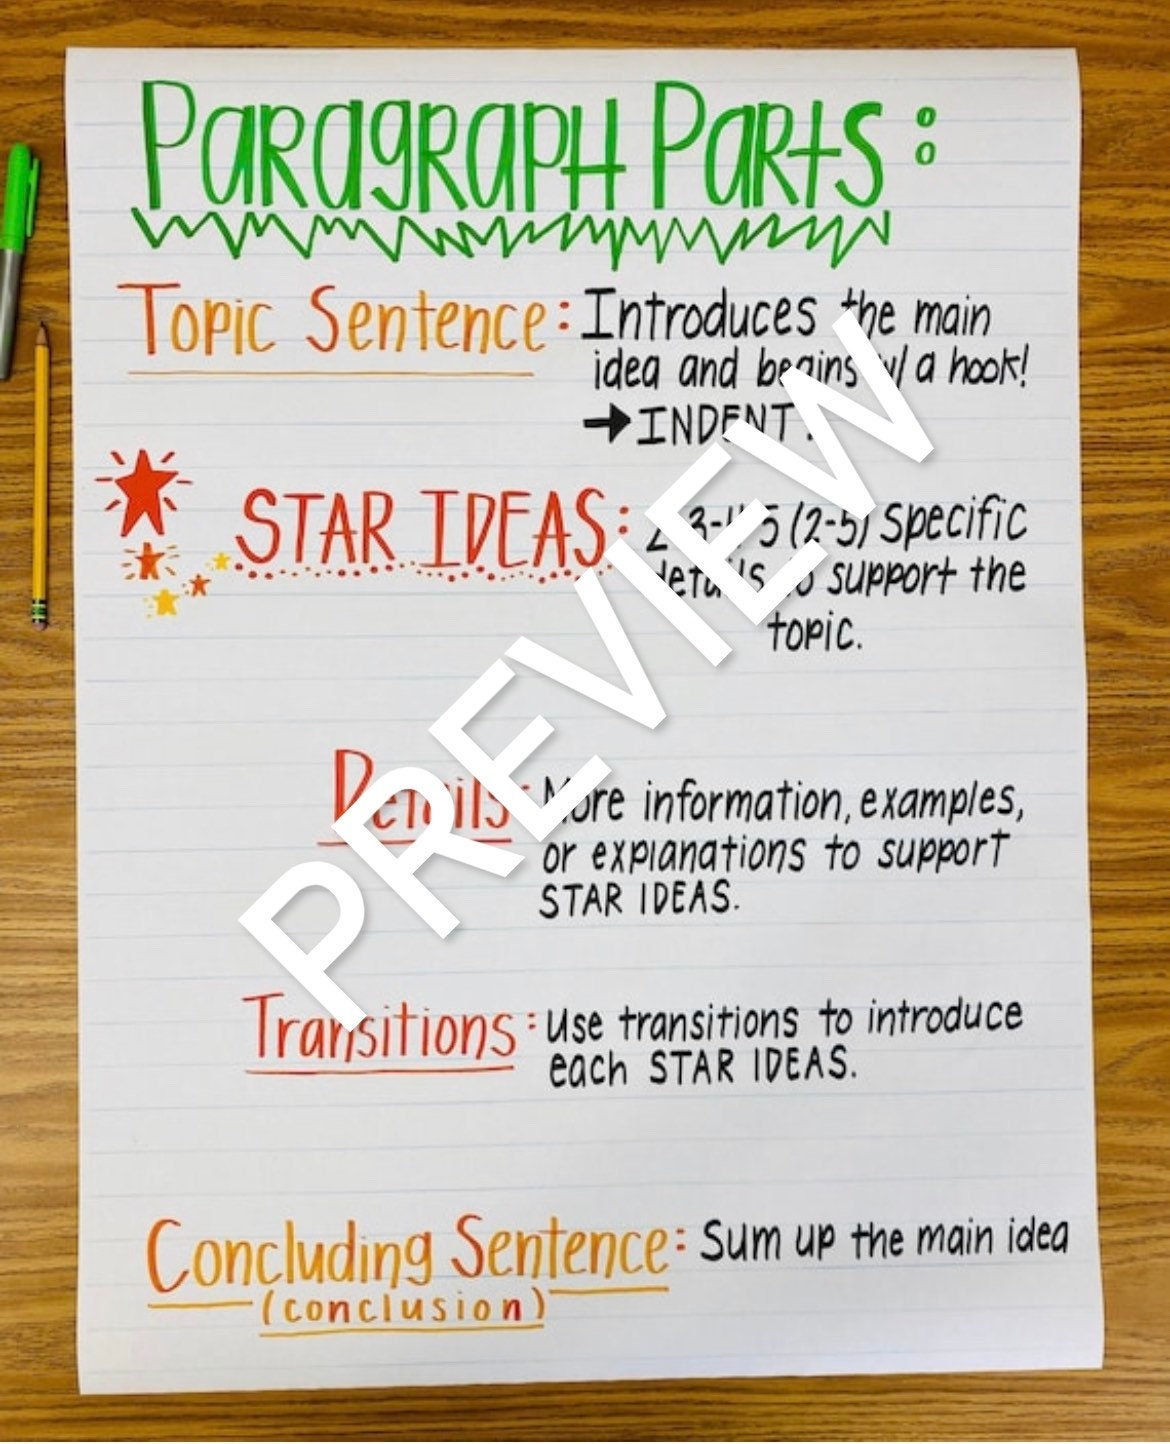 Paragraph Parts:
Topic Sentence: Introduces the main
idea and begins w/ a hook!
→ INDENT.
STAR IDEAS: 2-3-4-5 (2-5) Specific
details to support the
topic.
Details: More information, examples,
or explanations to support
STAR IDEAS.
Transitions: Use transitions to introduce
each STAR IDEAS.
Concluding Sentence: Sum up the main idea
(conclusion)
PREVIEW